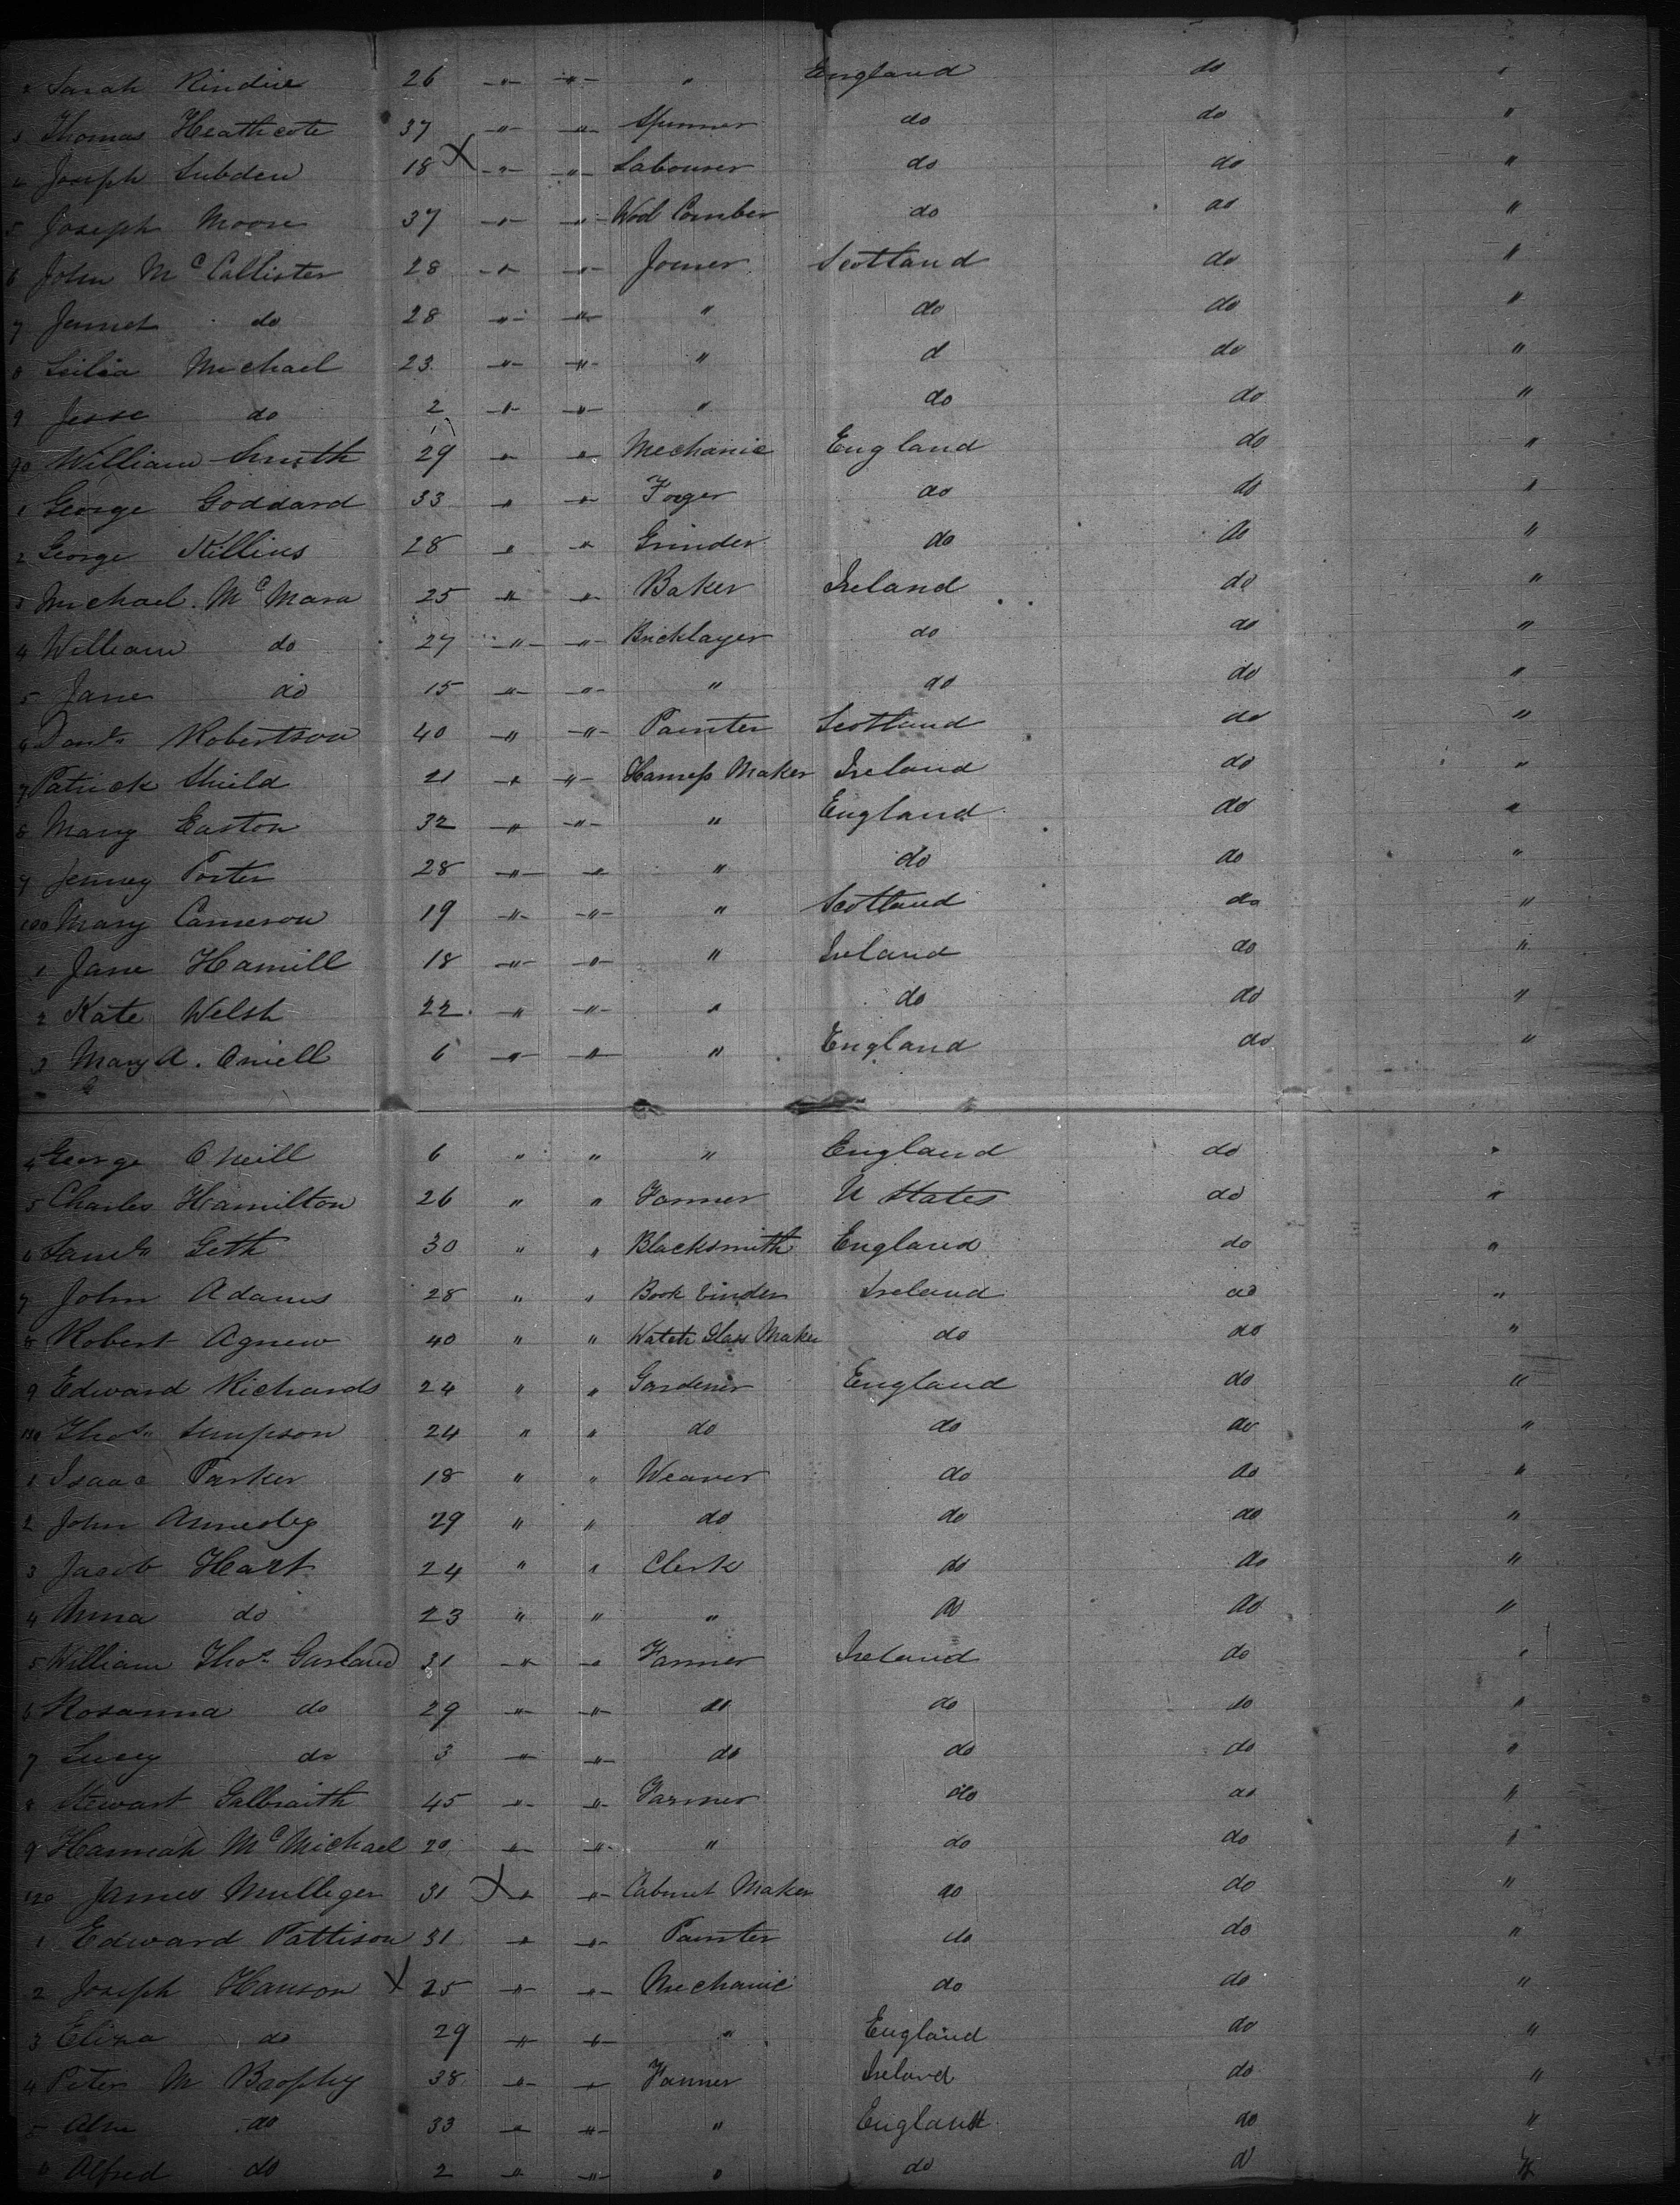 2 Sarah Rindice 26 " " " England do "
3 Thomas Heathcote 37 " " Spinner do do "
4 Joseph Subden 18 X " " Labourer do do "
5 Joseph Moore 37 " " Wool Comber do do "
6 John McCallister 28 " " Joiner Scotland do "
7 Jennet do 28 " " " do do "
8 Michael 23 " " " d do "
9 Jesse do 2 " " " do do "
90 William Smith 29 " " Mechanic England do "
1 George Goddard 33 " " Forger do do "
2 George Killius 28 " " Grinder do do "
3 Michael McMara 25 " " Baker Ireland do "
4 William do 27 " " Bricklayer do do "
5 Jane do 15 " " " do do "
6 Danl Robertson 40 " " Painter Scotland do "
7 Patrick Shield 21 " " Harness Maker Ireland do "
8 Mary Easton 32 " " " England do "
9 Jenney Porter 28 " " " do do "
100 Mary Cameron 19 " " " Scotland do "
1 Jane Hamill 18 " " " Ireland do "
2 Kate Welsh 22 " " " do do "
3 Mary A. Oniell 6 " " " England do "
4 George O Neill 6 " " " England do "
5 Charles Hamilton 26 " " Farmer U States do "
6 Saml Geth 30 " " Blacksmith England do "
7 John Adams 28 " " Book binder Ireland do "
8 Robert Agnew 40 " " Watch Glass Maker do do "
9 Edward Richards 24 " " Gardener England do "
110 Thos Simpson 24 " " do do do "
1 Isaac Parker 18 " " Weaver do do "
2 John Annesley 29 " " do do do "
3 Jacob Hart 24 " " Clerk do do "
4 Anna do 23 " " " do do "
5 William Thos Garland 31 " " Farmer Ireland do "
6 Rosanna do 29 " " " do do "
7 Lucy do 3 " " do do do "
8 Stewart Galbraith 45 " " Farmer do do "
9 Hannah McMichael 20 " " " do do "
120 James Mulliger 31 X " " Cabinet Maker do do "
1 Edward Pattison 31 " " Painter do do "
2 Joseph Hanson X 25 " " Mechanic do do "
3 Eliza do 29 " " " England do "
4 Peter M Brophy 38 " " Farmer Ireland do "
5 do 33 " " " England do "
6 Alfred do 2 " " " do d "